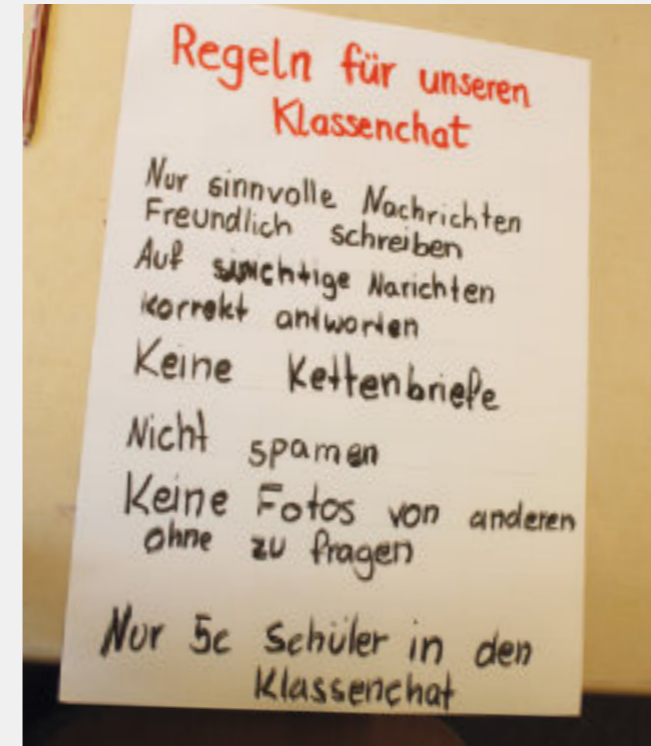 Regeln für unseren
Klassenchat
Nur sinnvolle Nachrichten
Freundlich schreiben
Auf Narichten
korrekt antworten
Keine Kettenbriefe
Nicht spamen
Keine Fotos von anderen
ohne zu fragen
Nur 5c Schüler in den
Klassenchat